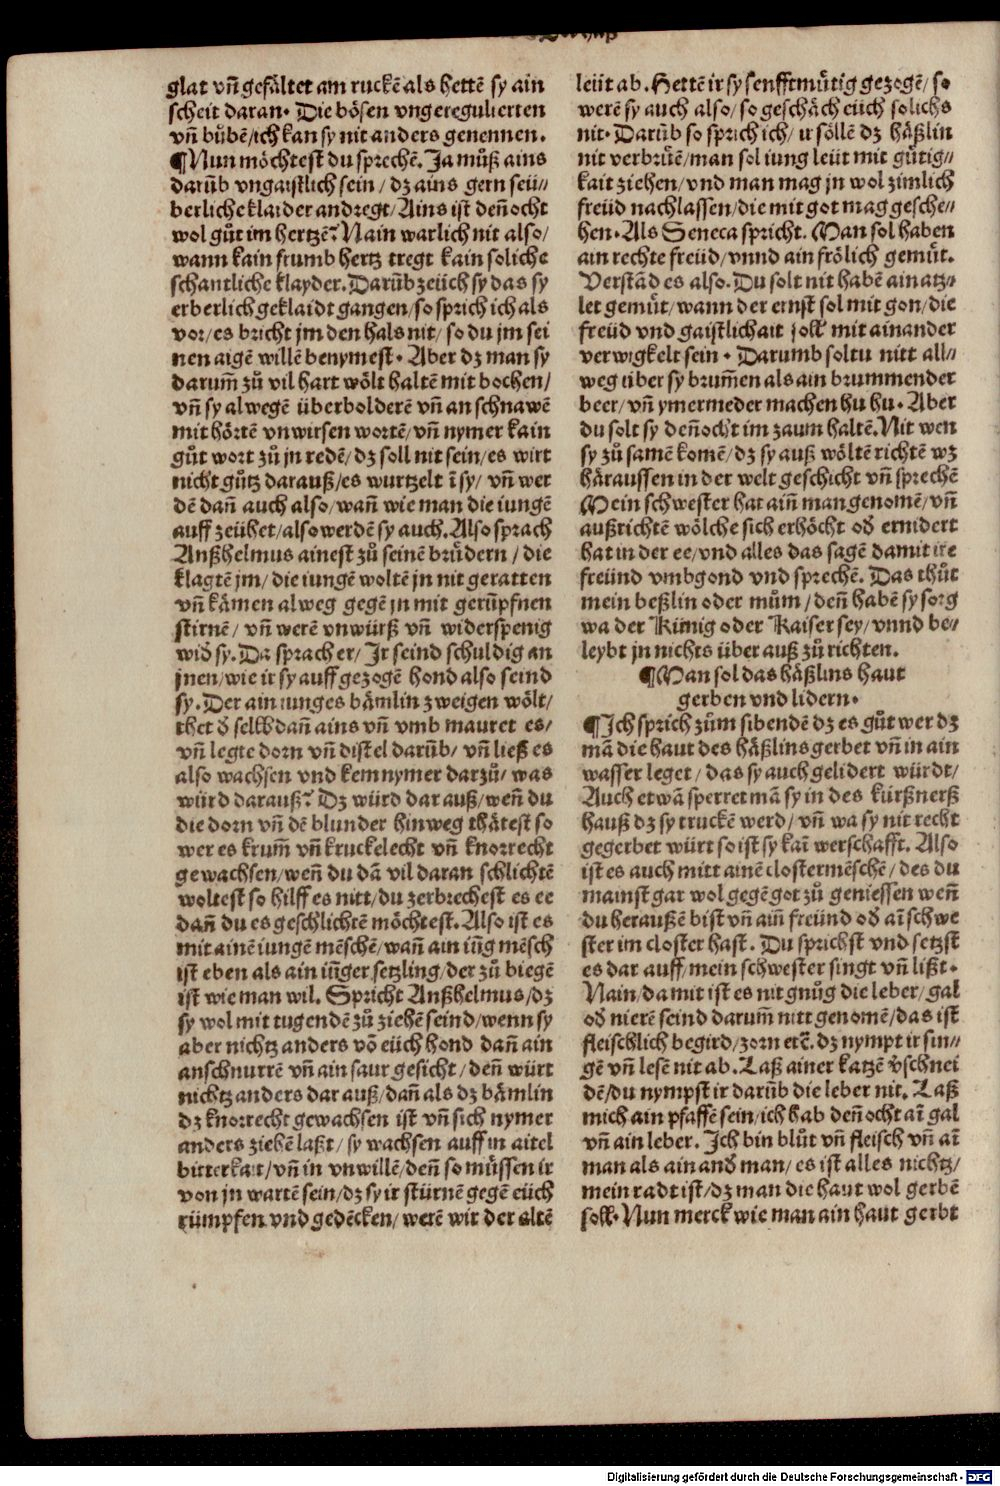 glat vñ gefältet am ruckē als hettē sy ain
scheit daran. Die bösen vngeregulierten
vñ bůbē/ich kan sy nit anders genennen.
¶Nun möchtest du sprechē. Ja můß ains
darūb vngaistlich sein / dz ains gern seü⸗
berliche klaider andregt/Ains ist deñocht
wol gůt im hertzē? Nain warlich nit also/
wann kain frumb hertz tregt kain soliche
schantliche klayder. Darūb zeüch sy das sy
erberlich geklaidt gangen/so sprich ich als
vor/es bricht jm den hals nit/so du jm sei
nen aigē willē benymest. Aber dz man sy
darum̄ zů vil hart wölt haltē mit bochen/
vñ sy alwegē überbolderē vñ an schnawē
mit hörtē vnwirsen wortē/vñ nymer kain
gůt wort zů jn redē/dz soll nit sein/es wirt
nicht gůtz darauß/es wurtzelt ī sy/ vñ wer
dē dañ auch also/wañ wie man die iungē
auff zeühet/also werdē sy auch. Also sprach
Anßhelmus ainest zů seinē brüdern / die
klagtē jm/die iungē woltē jn nit geratten
vñ kämen alweg gegē jn mit gerūpfnen
stirnē/ vñ werē vnwürß vñ widerspenig
wid̄ sy. Da sprach er/ Jr seind schuldig an
jnen/wie ir sy auff gezogē hond also seind
sy. Der ain iunges bämlin zweigen wölt/
thet d̄ selb dañ ains vñ vmb mauret es/
vñ legte dorn vñ distel darūb/ vñ ließ es
also wachsen vnd kem nymer darzů/ was
würd darauß? Dz würd dar auß/weñ du
die dorn vñ dē blunder hinweg thätest so
wer es krum̄ vñ kruckelecht vñ knorrecht
gewachsen/weñ du dā vil daran schlichtē
woltest so hilff es nitt/du zerbrechest es ee
dañ du es geschlichtē möchtest. Also ist es
mit ainē iungē mēschē/wañ ain iūg mēsch
ist eben als ain iūger setzling/der zů biegē
ist wie man wil. Spricht Anßhelmus/dz
sy wol mit tugendē zů ziehē seind/wenn sy
aber nichtz anders vō eüch hond dañ ain
anschnurrē vñ ain saur gesicht/ deñ würt
nichtz anders dar auß/dañ als dz bämlin
dz knorrecht gewachsen ist vñ sich nymer
anders ziehē laßt/ sy wachsen auff in aitel
bitterkait/vñ in vnwillē/deñ so müssen ir
von jn wartē sein/dz sy ir stürnē gegē eüch
rümpfen vnd gedēcken/ werē wir der altē
leüt ab. Hettē ir sy senfftmütig gezogē/ so
werē sy auch also/ so geschäch eüch solichs
nit. Darūb so sprich ich/ ir söllē dz häßlin
nit verbrüē/man sol iung leüt mit gütig⸗
kait ziehen/vnd man mag jn wol zimlich
freüd nachlassen/die mit got mag gesche⸗
hen. Als Seneca spricht. Man sol haben
ain rechte freüd/vnnd ain frölich gemüt.
Verstād es also. Du solt nit habē ain atz⸗
let gemüt/wann der ernst sol mit gon/die
freüd vnd gaistlichait soll mit ainander
verwigkelt sein . Darumb soltu nitt all⸗
weg über sy brum̄en als ain brummender
beer/vñ ymermeder machen hu hu. Aber
du solt sy deñocht im zaum haltē. Nit wen
sy zů samē komē/dz sy auß wöltē richtē wz
häraussen in der welt geschicht vñ sprechē
Mein schwester hat aiñ man genomē/vñ
außrichtē wölche sich erhöcht od̄ ernidert
hat in der ee/vnd alles das sagē damit ire
freünd vmbgond vnd sprechē. Das thůt
mein beßlin oder mům/deñ habē sy sorg
wa der Künig oder Kaiser sey/vnnd be⸗
leybt jn nichts über auß zů richten.
¶Man sol das häßlins haut
gerben vnd lidern.
¶Ich sprich zům sibendē dz es gůt wer dz
mā die haut des häßlins gerbet vñ in ain
wasser leget/das sy auch gelidert würdt/
Auch etwā sperret mā sy in des kürßnerß
hauß dz sy truckē werd/vñ wa sy nit recht
gegerbet würt so ist sy kaī werschafft. Also
ist es auch mitt ainē clostermēschē/des du
mainst gar wol gegē got zů geniessen weñ
du heraußē bist vñ aiñ freünd od̄ aī schwe
ster im closter hast. Du sprichst vnd setzst
es dar auff/mein schwester singt vñ lißt.
Nain/da mit ist es nit gnůg die leber/gal
od̄ nierē seind darum̄ nitt genomē/das ist
fleischlich begird/zorn etc̄. dz nympt ir sin⸗
gē vñ lesē nit ab. Laß ainer katzē v̄schnei
dē/du nympst ir darūb die leber nit. Laß
mich ain pfaffē sein/ich hab deñocht aī gal
vñ ain leber. Ich bin blůt vñ fleisch vñ aī
man als ain and̄ man/es ist alles nichtz/
mein radt ist/dz man die haut wol gerbē
soll. Nun merck wie man ain haut gerbt
Digitalisierung gefördert durch die Deutsche Forschungsgemeinschaft - DFG